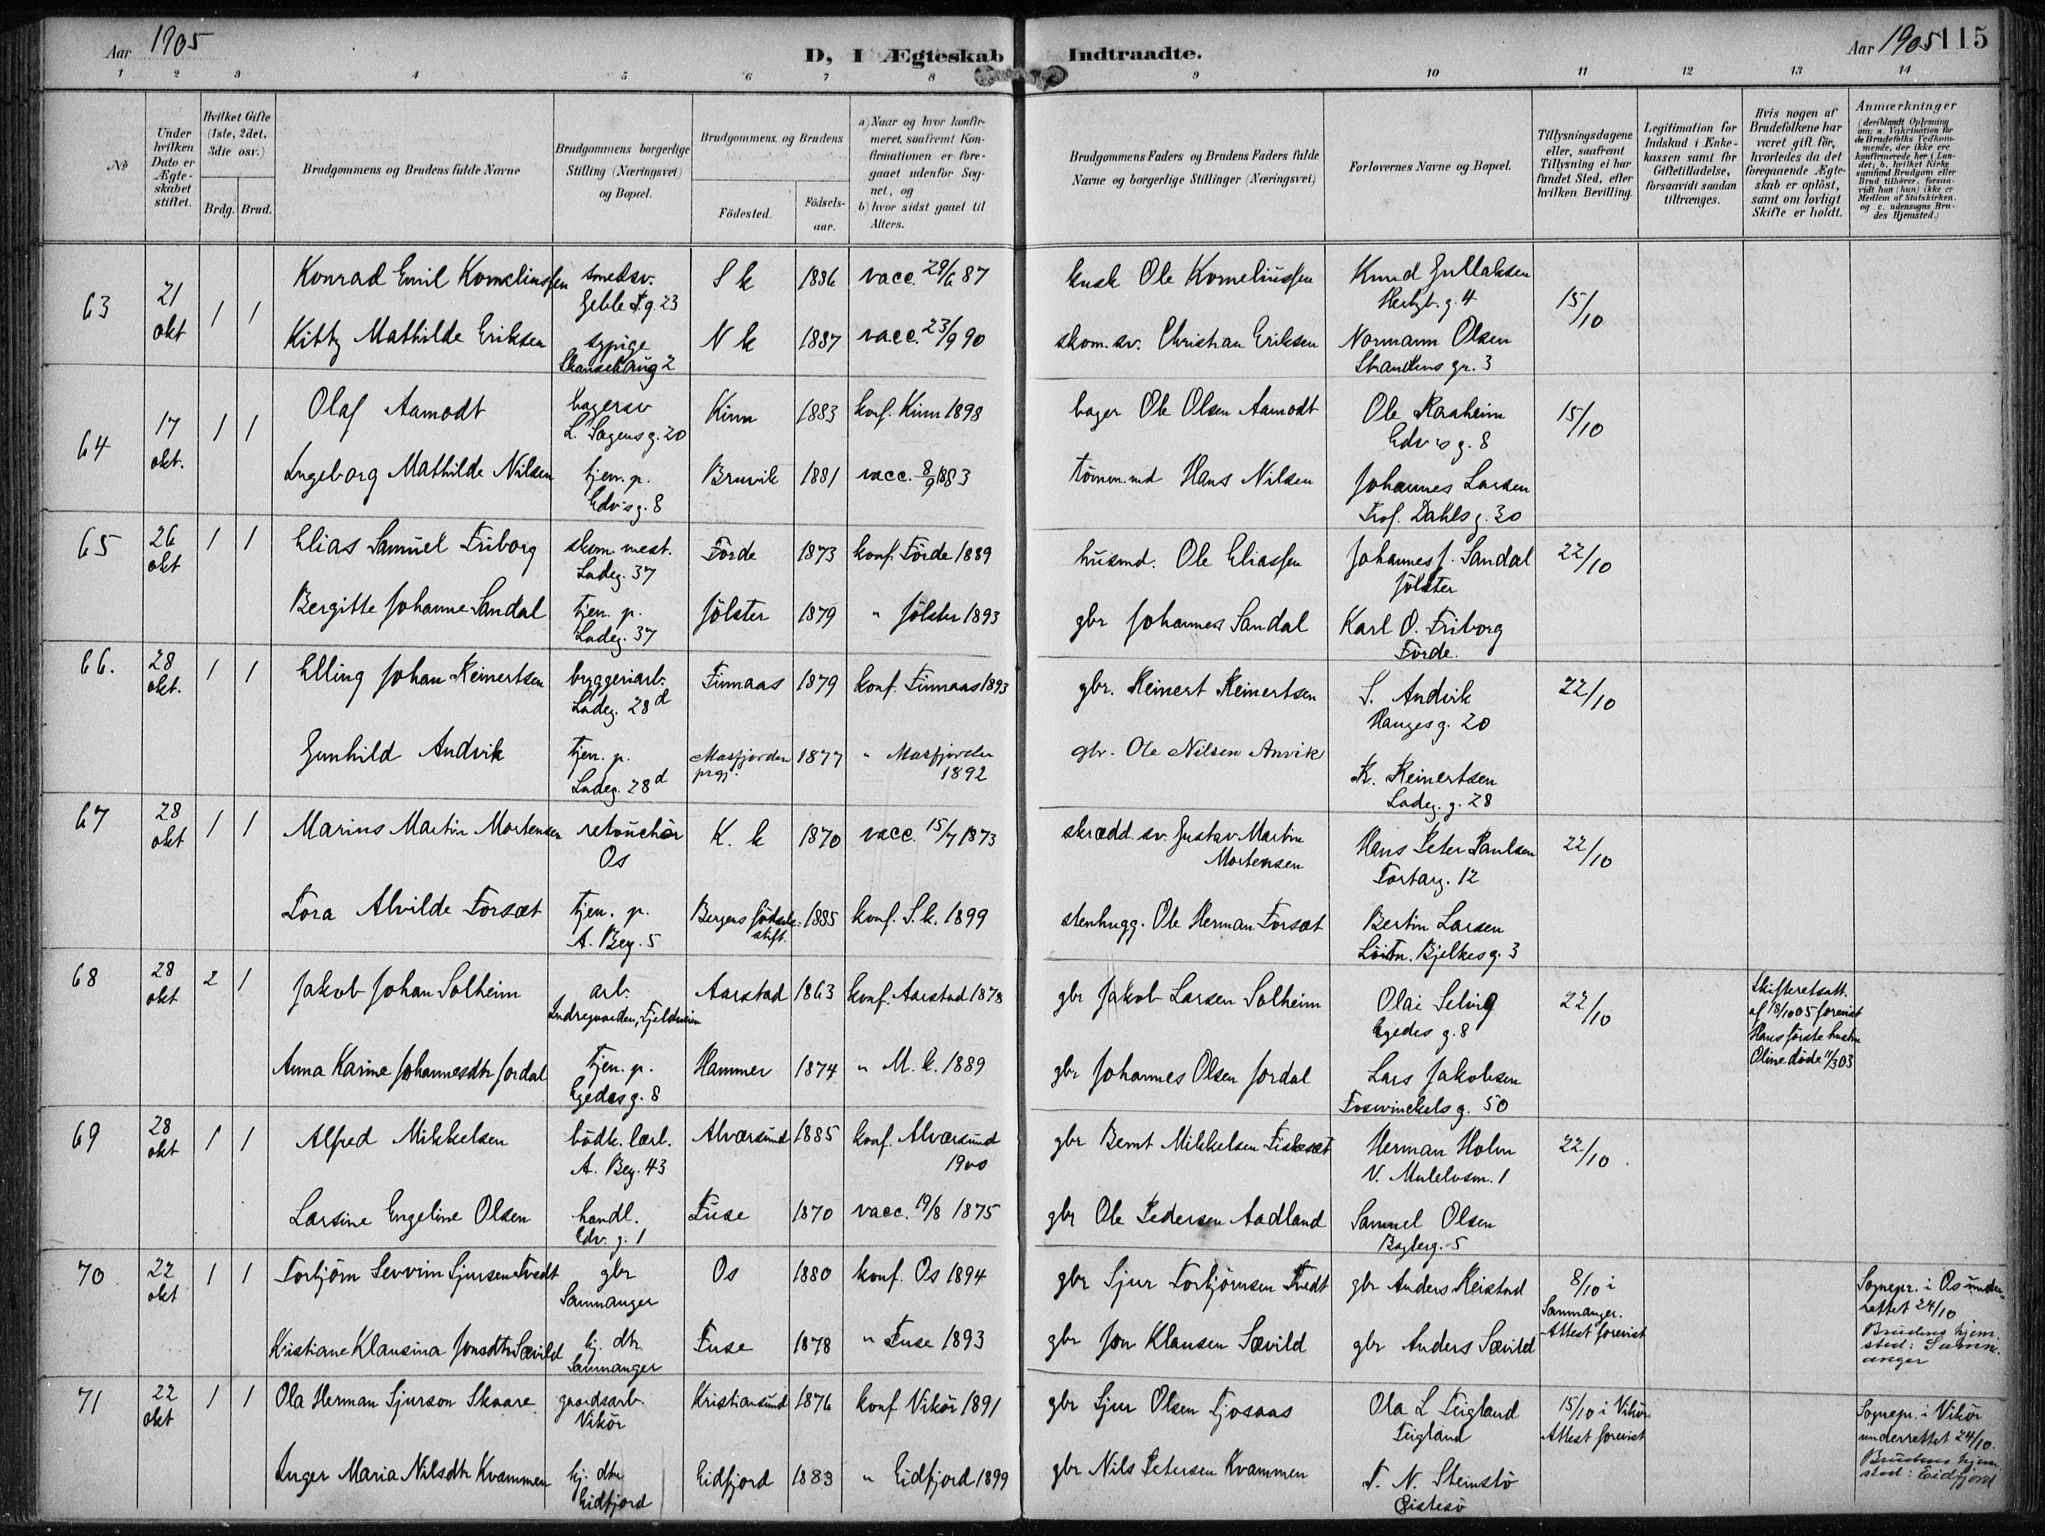 Aar 1905
D, I Ægteskab Indtraadte.
Aar 1905 115
1 2 3 4 5 6 7 8 9 10 11 12 13 14
No
Under hvilken Dato er Ægteskabet stiftet.
Hvilket Gifte (1ste, 2det, 3die osv.)
Brdg. Brud.
Brudgommens og Brudens fulde Navne
Brudgommens borgerlige Stilling (Næringsvei) og Bopæl.
Brudgommens og Brudens
Fødested.
Fødsels-aar.
a) Naar og hvor konfirmeret, saafremt Konfirmationen er foregaaet udenfor Sognet, og
b) hvor sidst gaaet til Alters.
Brudgommens Faders og Brudens Faders fulde Navne og borgerlige Stillinger (Næringsvei)
Forlovernes Navne og Bopæl.
Tillysningsdagene eller, saafremt Tillysning ei har fundet Sted, efter hvilken Bevilling.
Legitimation for Indskud i Enkekassen samt for Giftetilladelse, forsaavidt saadan tiltrænges.
Hvis nogen af Brudefolkene har været gift før, hvorledes da det foregaaende Ægteskab er opløst, samt om lovligt Skifte er holdt.
Anmærkninger (deriblandt Oplysning om: a. Vakcination for de Brudefolks Vedkommende, der ikke ere konfirmerede her i Landet; b. hvilket Kirkesamfund Brudgom eller Brud tilhører, forsaavidt han (hun) ikke er Medlem af Statskirken, og c. udensogns Brudes Hjemsted.)
63 21 okt 1 1 Konrad Emil Korneliussen smedsv. S k 1886 vacc. 29/6 87 kusk Ole Korneliussen Knud Gullaksen 15/10
g. 23 g. 4
Kitty Mathilde Eriksen sypige N k 1887 vacc. 23/9 90 skom. sv. Christian Eriksen Normann Olsen
2 gr. 3
64 17 okt. 1 1 Olaf Aamodt bagersv Kinn 1883 konf. Kinn 1898 bager Ole Olsen Aamodt Ole Raaheim 15/10
L. Sagensg. 20 Edv's g. 8
Ingeborg Mathilde Nilsen tjen. p. Bruvik 1881 vacc. 8/9 1883 tømm.md Hans Nilsen Johannes Larsen
Edv'sg. 8 Prof. Dahlsg. 30
65 26 okt 1 1 Elias Samuel Friborg skom. mest. Førde 1873 konf. Førde 1889 husmd. Ole Eliassen Johannes J. Sandal 22/10
Ladeg. 37 Jølster
Bergitte Johanne Sandal tjen. p. Jølster 1879 " Jølster 1893 gbr Johannes Sandal Karl O. Friborg
Ladeg. 37 Førde.
66. 28 okt. 1 1 Elling Johan Reinertsen bryggeriarb. Finnaas 1879 konf. Finnaas 1893 gbr. Reinert Reinertsen S. Andvik 22/10
Ladeg. 28 d Haugesg. 20
Gunhild Andvik tjen. p. Masfjorden prgj. 1877 " Masfjorden 1892 gbr. Ole Nilsen Anvik
Ladeg. 28 d K. Reinertsen
Ladeg. g. 28
67 28 okt 1 1 Marius Martin Mortensen retouchør K. k 1870 vacc. 15/7 1873 skrædd. sv. Gustav Martin Mortensen Hans Peter Paulsen 22/10
Os Tortarg. 12
Tora Alvilde Forsæt tjen. p. Bergens fødselsstift. 1885 konf. S. k. 1899 stenhugg. Ole Herman Forsæt Bertin Larsen
A. Beg. 5 Løitn. Bjelkesg. 3
68 28 okt 2 1 Jakob Johan Solheim arb. Aarstad 1863 konf. Aarstad 1878 gbr Jakob Larsen Solheim Olai Selvig 22/10 Skifteretsatt. af 18/10 05 forevist
Fjeldveien Egedes g. 8 Hans første hustru Oline døde 11/3 03
Anna Karine Johannesdtr Jordal tjen. p. Hammer 1874 " M. k. 1889 gbr Johannes Olsen Jordal Lars Jakobsen
Egedesg. 8 Fosvinckels g. 50
69 28 okt 1 1 Alfred Mikkelsen bødk. lærl. Alværsund 1885 konf. Alværsund 1900 gbr Bernt Mikkelsen Fiskeset Herman Holm 22/10
A. Beg. 43 V. Mulelvsm. 1
Larsine Engeline Olsen handl. Fuse 1870 vacc. 19/8 1875 gbr Ole Pedersen Aadland Samuel Olsen
Edv. g. 1 Baglerg. 5
70 22 okt 1 1 Torbjørn Sevrin Sjursen Tvedt gbr Os 1880 konf. Os 1894 gbr Sjur Torbjørnsen Tvedt gbr Anders Reistad 8/10 i Samnanger. Attest forevist Sognepr. i Os underrettet 24/10
Samnanger Brudens hjemsted: Samnanger
Kristiane Klausina Jonsdtr Sævild hj. dtr. Fuse 1878 " Fuse 1893 gbr Jon Klausen Sævild gbr Anders Sævild
Samnanger
71 22 okt 1 1 Ola Herman Sjurson Skaare gaardsarb. Kristiansund 1876 konf Vikør 1891 gbr Sjur Olsen Fjosaas Ola L Teigland 15/10 i Vikør Attest forevist Sognepr. i Vikør underrettet 24/10.
Vikør Teigland Brudens hjemsted: Eidfjord
Inger Maria Nilsdtr Kvammen hj. dtr Eidfjord 1883 " Eidfjord 1899 gbr Nils Petersen Kvammen T. N. Steinstø
Eidfjord